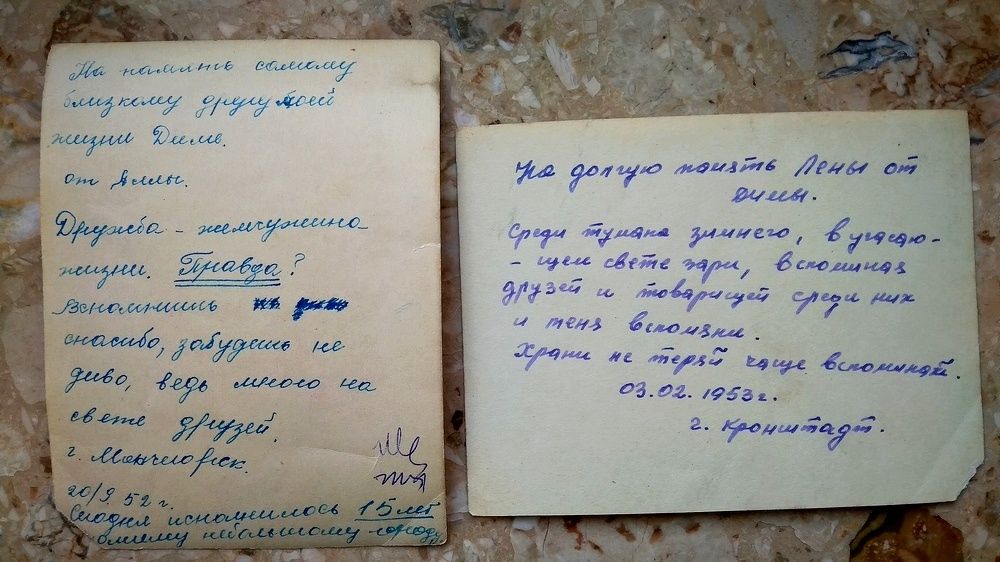 На память самому
близкому другу моей
жизни Диме.
от Аллы.
Дружба - жемчужина
жизни. Правда?
Вспомнишь
спасибо, забудешь не
диво, ведь много на
свете друзей.
г. Мончегорск.
20/9. 52 г.
Сегодня исполнилось 15 лет
нашему небольшому городу
На долгую память Лены от
Димы.
Среди тумана зимнего, в угасаю-
- щем свете зари, вспоминая
друзей и товарищей среди них
и меня вспомяни.
Храни не теряй чаще вспоминай.
03.02.1953г.
г. Кронштадт.